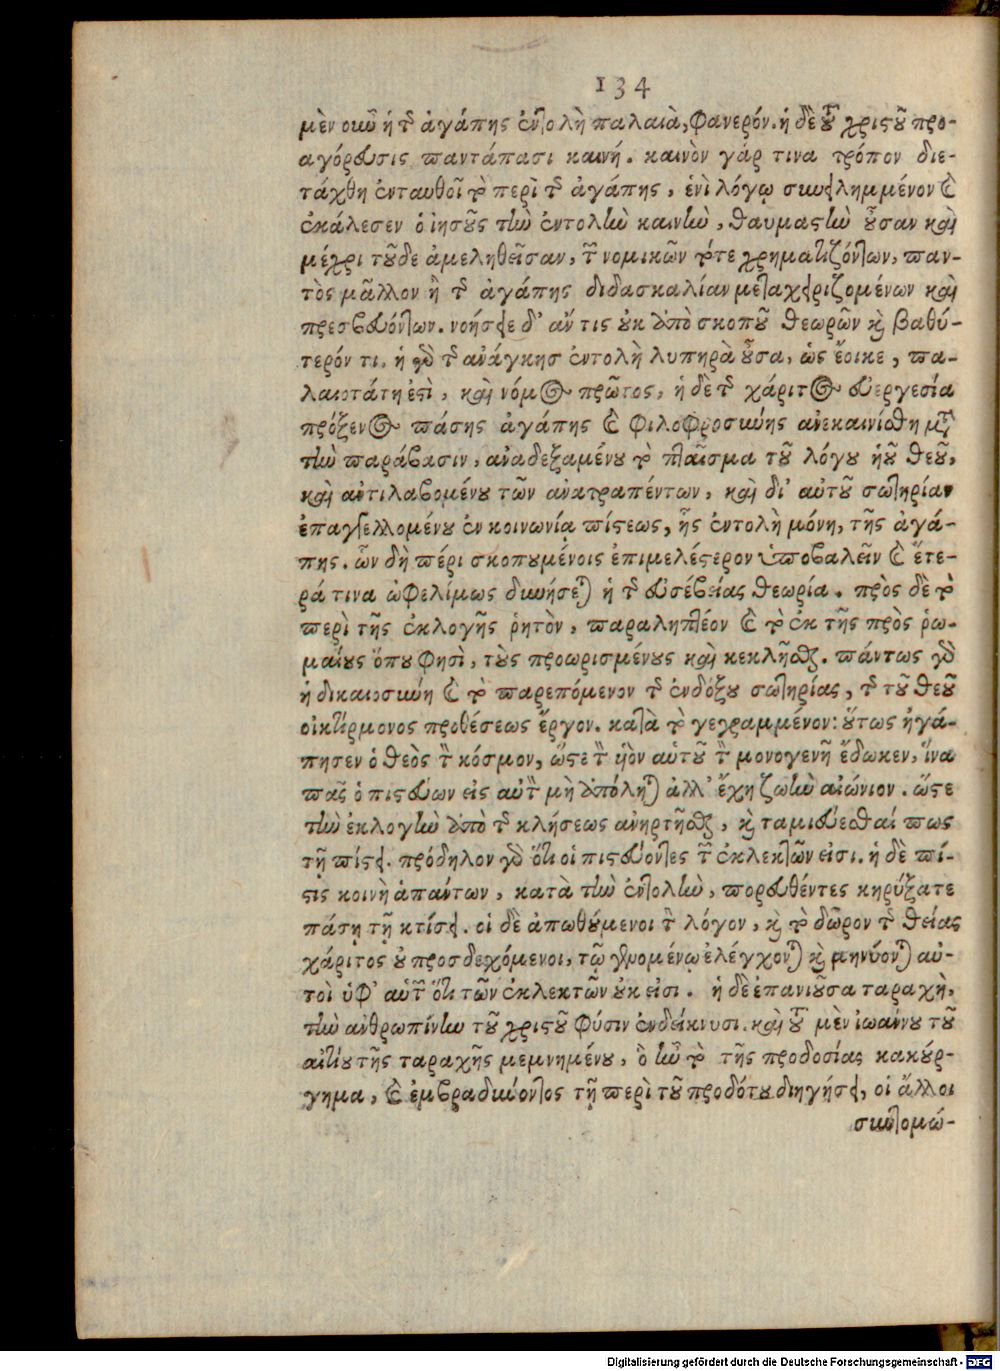 134
μὲν οὖν ἡ τῆς ἀγάπης ἐντολὴ παλαιὰ, φανερόν. ἡ δὲ τοῦ χριστοῦ προ-
αγόρευσις παντάπασι καινή. καινὸν γάρ τινα τρόπον διε-
τάχθη ἐνταυθοῖ τὸ περὶ τῆς ἀγάπης, ἑνὶ λόγῳ συνειλημμένον καὶ
ἐκάλεσεν ὁ ἰησοῦς τὴν ἐντολὴν καινὴν, θαυμαστὴν οὖσαν καὶ
μέχρι τοῦδε ἀμεληθεῖσαν, τῶν νομικῶν τότε χρηματιζόντων, παν-
τὸς μᾶλλον ἢ τῆς ἀγάπης διδασκαλίαν μεταχειριζομένων καὶ
πρεσβευόντων. νοήσειε δ' ἄν τις οὐκ ἀπὸ σκοποῦ θεωρῶν καὶ βαθύ-
τερόν τι. ἡ γὰρ τῆς ἀνάγκησ ἐντολὴ λυπηρὰ οὖσα, ὡς ἔοικε, πα-
λαιοτάτη ἐστὶ, καὶ νόμος πρῶτος, ἡ δὲ τῆς χάριτος εὐεργεσία
πρόξενος πάσης ἀγάπης καὶ φιλοφροσύνης ἀνεκαινίσθη μετὰ
τὴν παράβασιν, ἀναδεξαμένου τὸ πταῖσμα τοῦ λόγου υἱοῦ θεοῦ,
καὶ ἀντιλαβομένου τῶν ἀνατραπέντων, καὶ δι' αὐτοῦ σωτηρίαν
ἐπαγγελλομένου ἐν κοινωνία πίστεως, ἧς ἐντολὴ μόνη, τῆς ἀγά-
πης. ὧν δὴ πέρι σκοπουμένοις ἐπιμελέστερον ὑποβαλεῖν καὶ ἕτε-
ρά τινα ὠφελίμως δυνήσεται ἡ τῆς εὐσεβείας θεωρία. πρὸς δὲ τὸ
περὶ τῆς ἐκλογῆς ῥητὸν, παραληπτέον καὶ τὸ ἐκ τῆς πρὸς ῥω-
μαίους ὅπου φησὶ, τοὺς προωρισμένους καὶ κεκλῆσθαι. πάντως γὰρ
ἡ δικαιοσύνη καὶ τὸ παρεπόμενον τῆς ἐνδόξου σωτηρίας, τῆς τοῦ θεοῦ
οἰκτίρμονος προθέσεως ἔργον. κατὰ τὸ γεγραμμένον: οὕτως ἠγά-
πησεν ὁ θεὸς τὸν κόσμον, ὥστε τὸν υἱὸν αὑτοῦ τὸν μονογενῆ ἔδωκεν, ἵνα
πᾶς ὁ πιστεύων εἰς αὐτὸν μὴ ἀπόληται ἀλλ' ἔχῃ ζωὴν αἰώνιον. ὥστε
τὴν ἐκλογὴν ἀπὸ τῆς κλήσεως ἀνηρτῆσθαι, καὶ ταμιεύεσθαί πως
τῇ πίστει. πρόδηλον γὰρ ὅτι οἱ πιστεύοντες τῶν ἐκλεκτῶν εἰσι. ἡ δὲ πί-
στις κοινὴ ἁπάντων, κατὰ τὴν ἐντολὴν, πορευθέντες κηρύξατε
πάσῃ τῇ κτίσει. οἱ δὲ ἀπωθούμενοι τὸν λόγον, καὶ τὸ δῶρον τῆς θείας
χάριτος οὐ προσδεχόμενοι, τῷ γινομένῳ ἐλέγχονται καὶ μηνύονται αὐ-
τοὶ ὑφ' αὑτῶν ὅτι τῶν ἐκλεκτῶν οὐκ εἰσι. ἡ δὲ ἐπανιοῦσα ταραχὴ,
τὴν ἀνθρωπίνην τοῦ χριστοῦ φύσιν ἐνδείκνυσι. καὶ τοῦ μὲν ἰωάννου τοῦ
αἰτίου τῆς ταραχῆς μεμνημένου, ὃ ἦν τὸ τῆς προδοσίας κακούρ-
γημα, καὶ ἐμβραδύνοντος τῇ περὶ τοῦ προδότου διηγήσει, οἱ ἄλλοι
συντομώ-
Digitalisierung gefördert durch die Deutsche Forschungsgemeinschaft - DFG